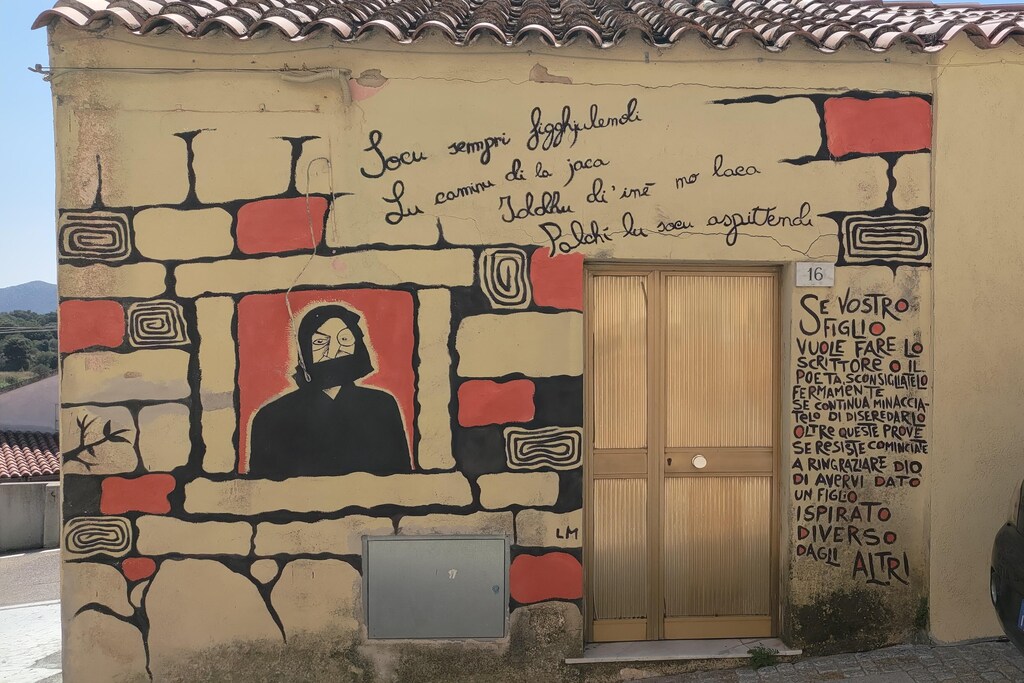 Socu sempri figghjulendi
Lu caminu di la jaca
Iddhu di'inè no laca
Palchì lu socu aspittendi
16
SE VOSTRO
FIGLIO
VUOLE FARE LO
SCRITTORE O IL
POETA, SCONSIGLIATELO
FERMAMENTE
SE CONTINUA MINACCIA-
TELO DI DISEREDARLO
OLTRE QUESTE PROVE
SE RESISTE COMINCIATE
A RINGRAZIARE DIO
DI AVERVI DATO
UN FIGLIO
ISPIRATO
DIVERSO
DAGLI ALTRI
LM